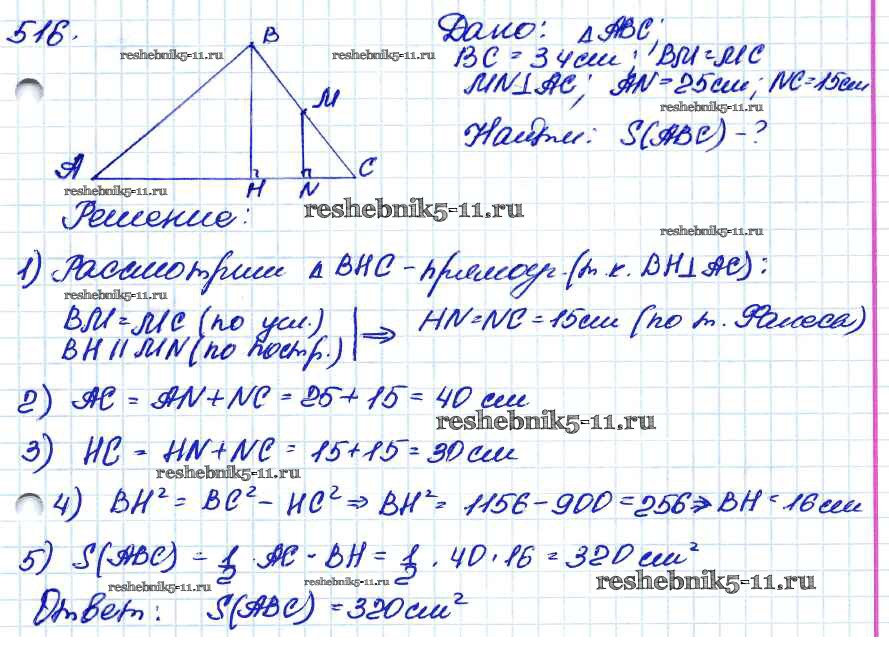 516.
B
reshebnik5-11.ru
reshebnik5-11.ru
M
A
H
N
C
reshebnik5-11.ru
Дано: △ABC;
BC = 34см; BM = MC
MN⊥AC; AN = 25см; NC = 15см
reshebnik5-11.ru
Найти: S(ABC) - ?
Решение:
reshebnik5-11.ru
reshebnik5-11.ru
1) Рассмотрим △ BHC - прямоуг. (т.к. BH⊥AC):
reshebnik5-11.ru
BM = MC (по усл.)
BH || MN (по постр.) ⇒ HN = NC = 15см (по т. Фалеса)
2) AC = AN + NC = 25 + 15 = 40 см
reshebnik5-11.ru
3) HC = HN + NC = 15 + 15 = 30 см
reshebnik5-11.ru
4) BH² = BC² - HC² ⇒ BH² = 1156 - 900 = 256 ⇒ BH = 16 см
5) S(ABC) = 1/2 · AC · BH = 1/2 · 40 · 16 = 320 см²
reshebnik5-11.ru
reshebnik5-11.ru
reshebnik5-11.ru
Ответ: S(ABC) = 320 см²